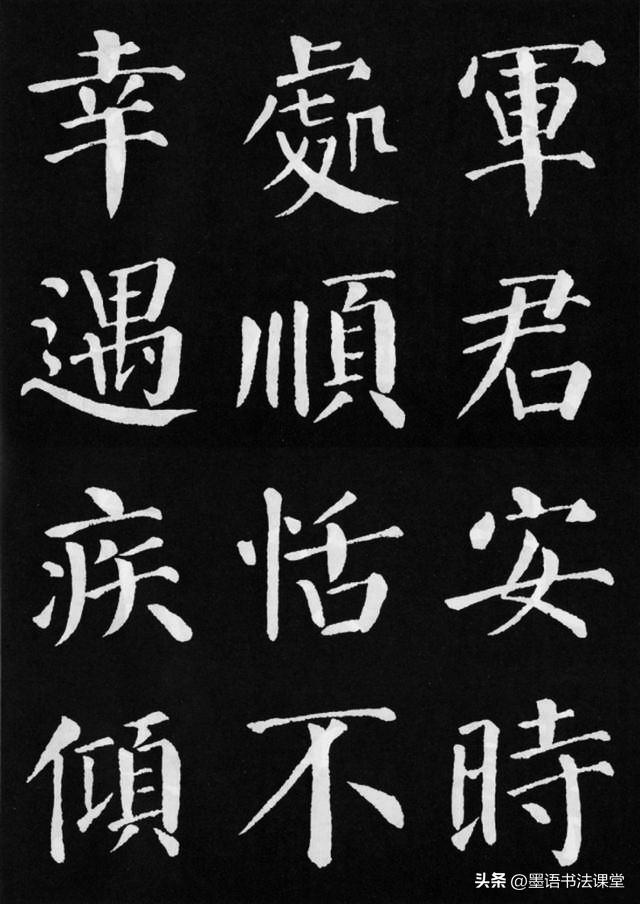 軍君安時
處順恬不
幸遇疾傾
头条 @墨语书法课堂